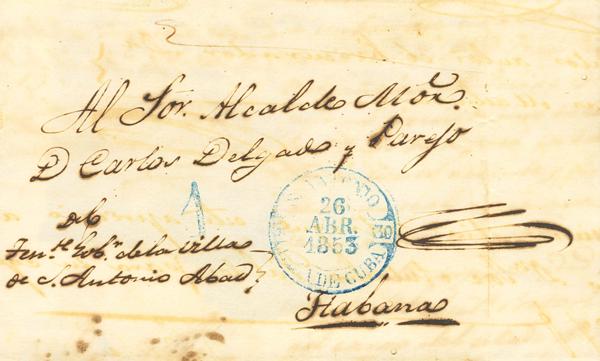 Al Sor. Alcalde Mor.
D Carlos Delgado y Parejo
del
Tente. Gobr. de la Villa
de S. Antonio Abad
1
S. ANTONIO
26
ABR.
1853
ISLA DE CUBA
Habana